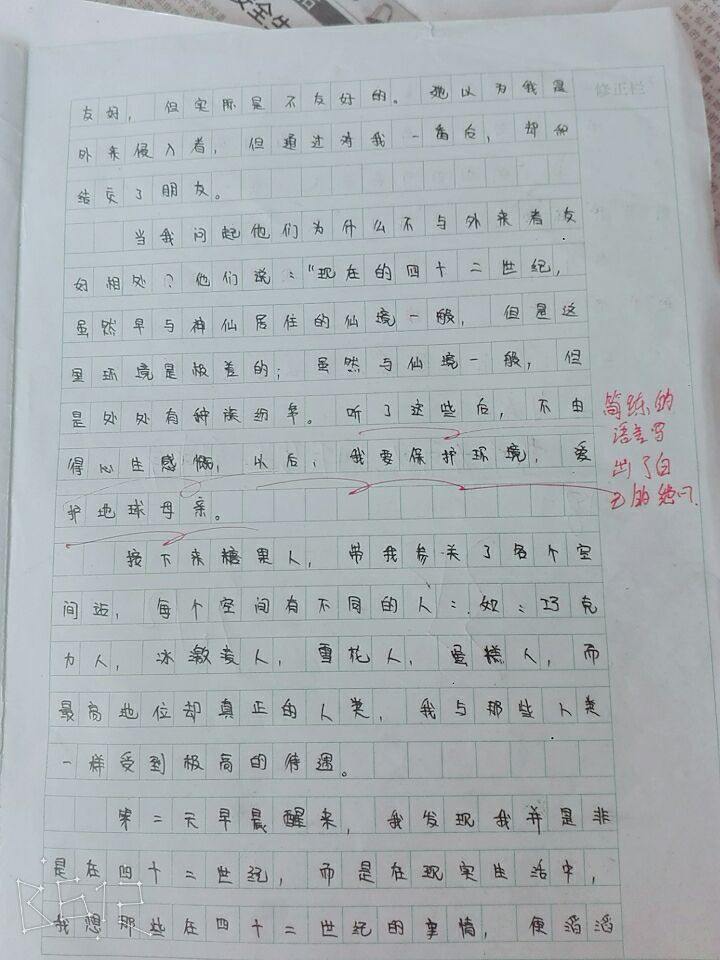 友好，但实际是不友好的。她以为我是
外来侵入者，但通过对我一番后，却和
结交了朋友。
当我问起他们为什么不与外来者友
好相处？他们说："现在的四十二世纪，
虽然早与神仙居住的仙境一般，但是这
里环境是极差的；虽然与仙境一般，但
是处处有种族纷争。听了这些后，不由
得心生感慨，以后，我要保护环境，爱
护地球母亲。
接下来糖果人，带我参关了各个空
间站，每个空间有不同的人：如：巧克
力人，冰激凌人，雪花人，蛋糕人，而
最高地位却真正的人类，我与那些人类
一样受到极高的待遇。
第二天早晨醒来，我发现我并是非
是在四十二世纪，而是在现实生活中，
我想那些在四十二世纪的事情，便滔滔
修正栏
简练的
语言写
出了自
己的
B612